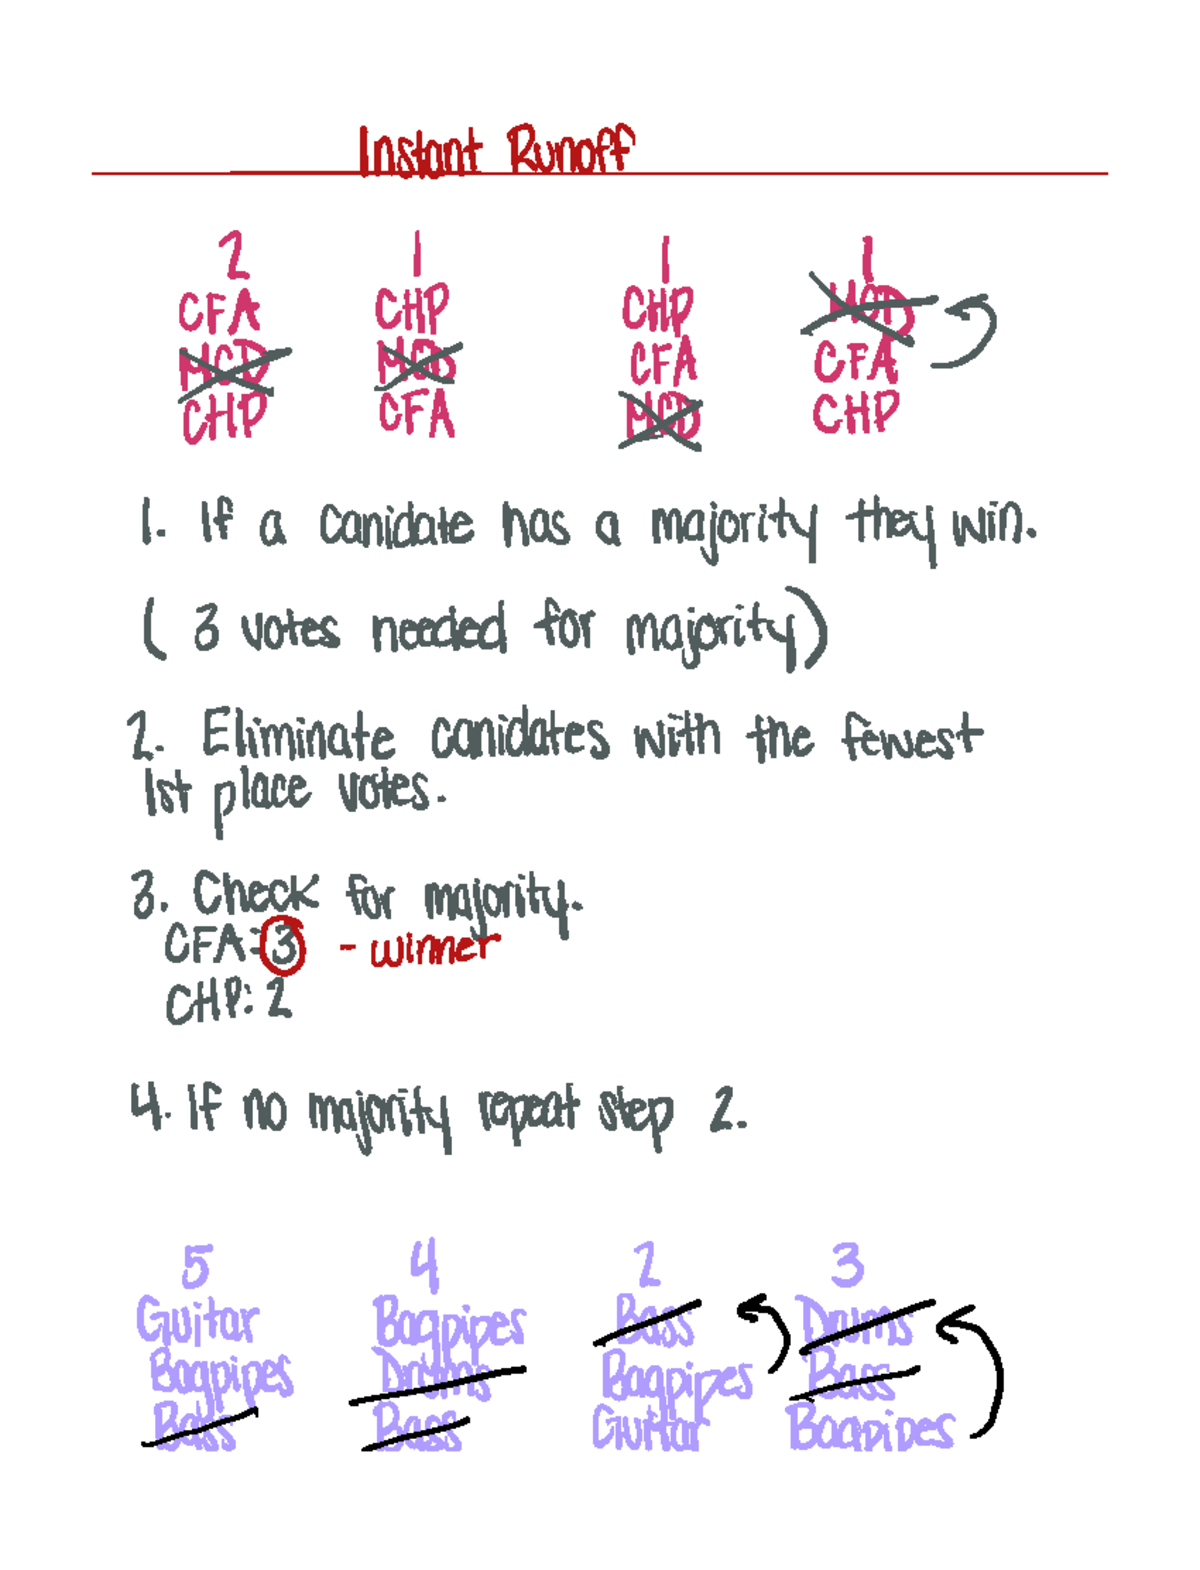 Instant Runoff
2 1 1 1
CFA CHP CHP MCD
MCD MCD CFA CFA
CHP CFA MCD CHP
1. If a canidate has a majority they win.
( 3 votes needed for majority)
2. Eliminate canidates with the fewest
1st place votes.
3. Check for majority.
CFA: 3 - winner
CHP: 2
4. If no majority repeat step 2.
5 4 2 3
Guitar Bagpipes Bass Drums
Bagpipes Drums Bagpipes Bass
Bass Bass Guitar Bagpipes